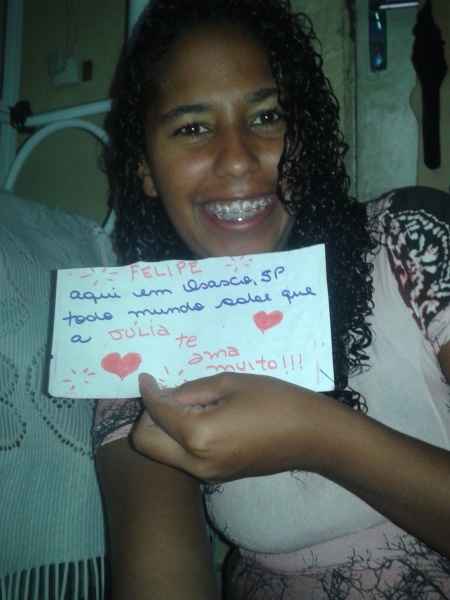 FELIPE
aqui em Osasco, SP
todo mundo sabe que
a JULIA te
ama
muito!!!